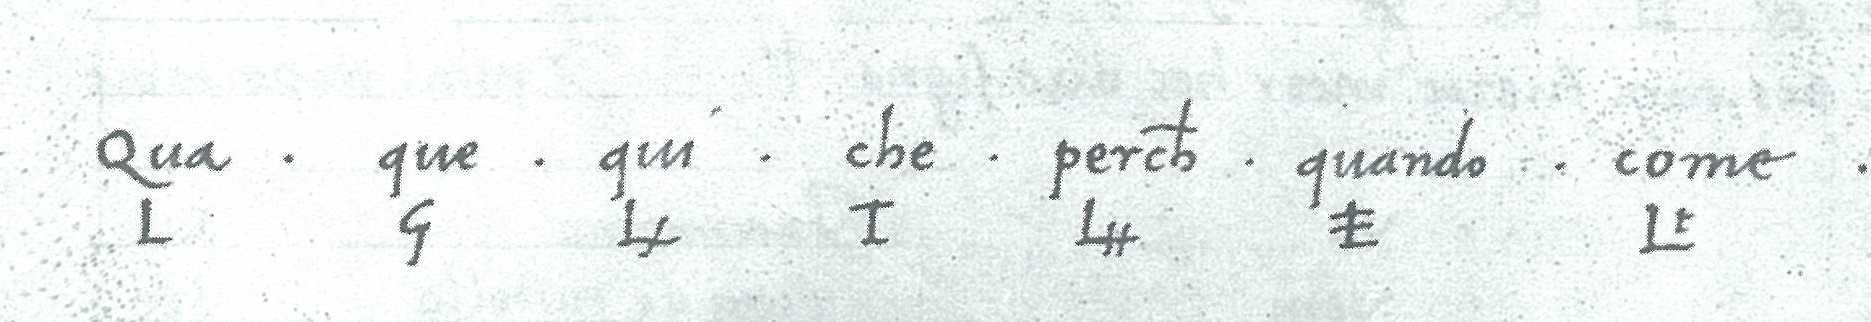 Qua . que . qui . che . perch . quando . come .
L G L I L L